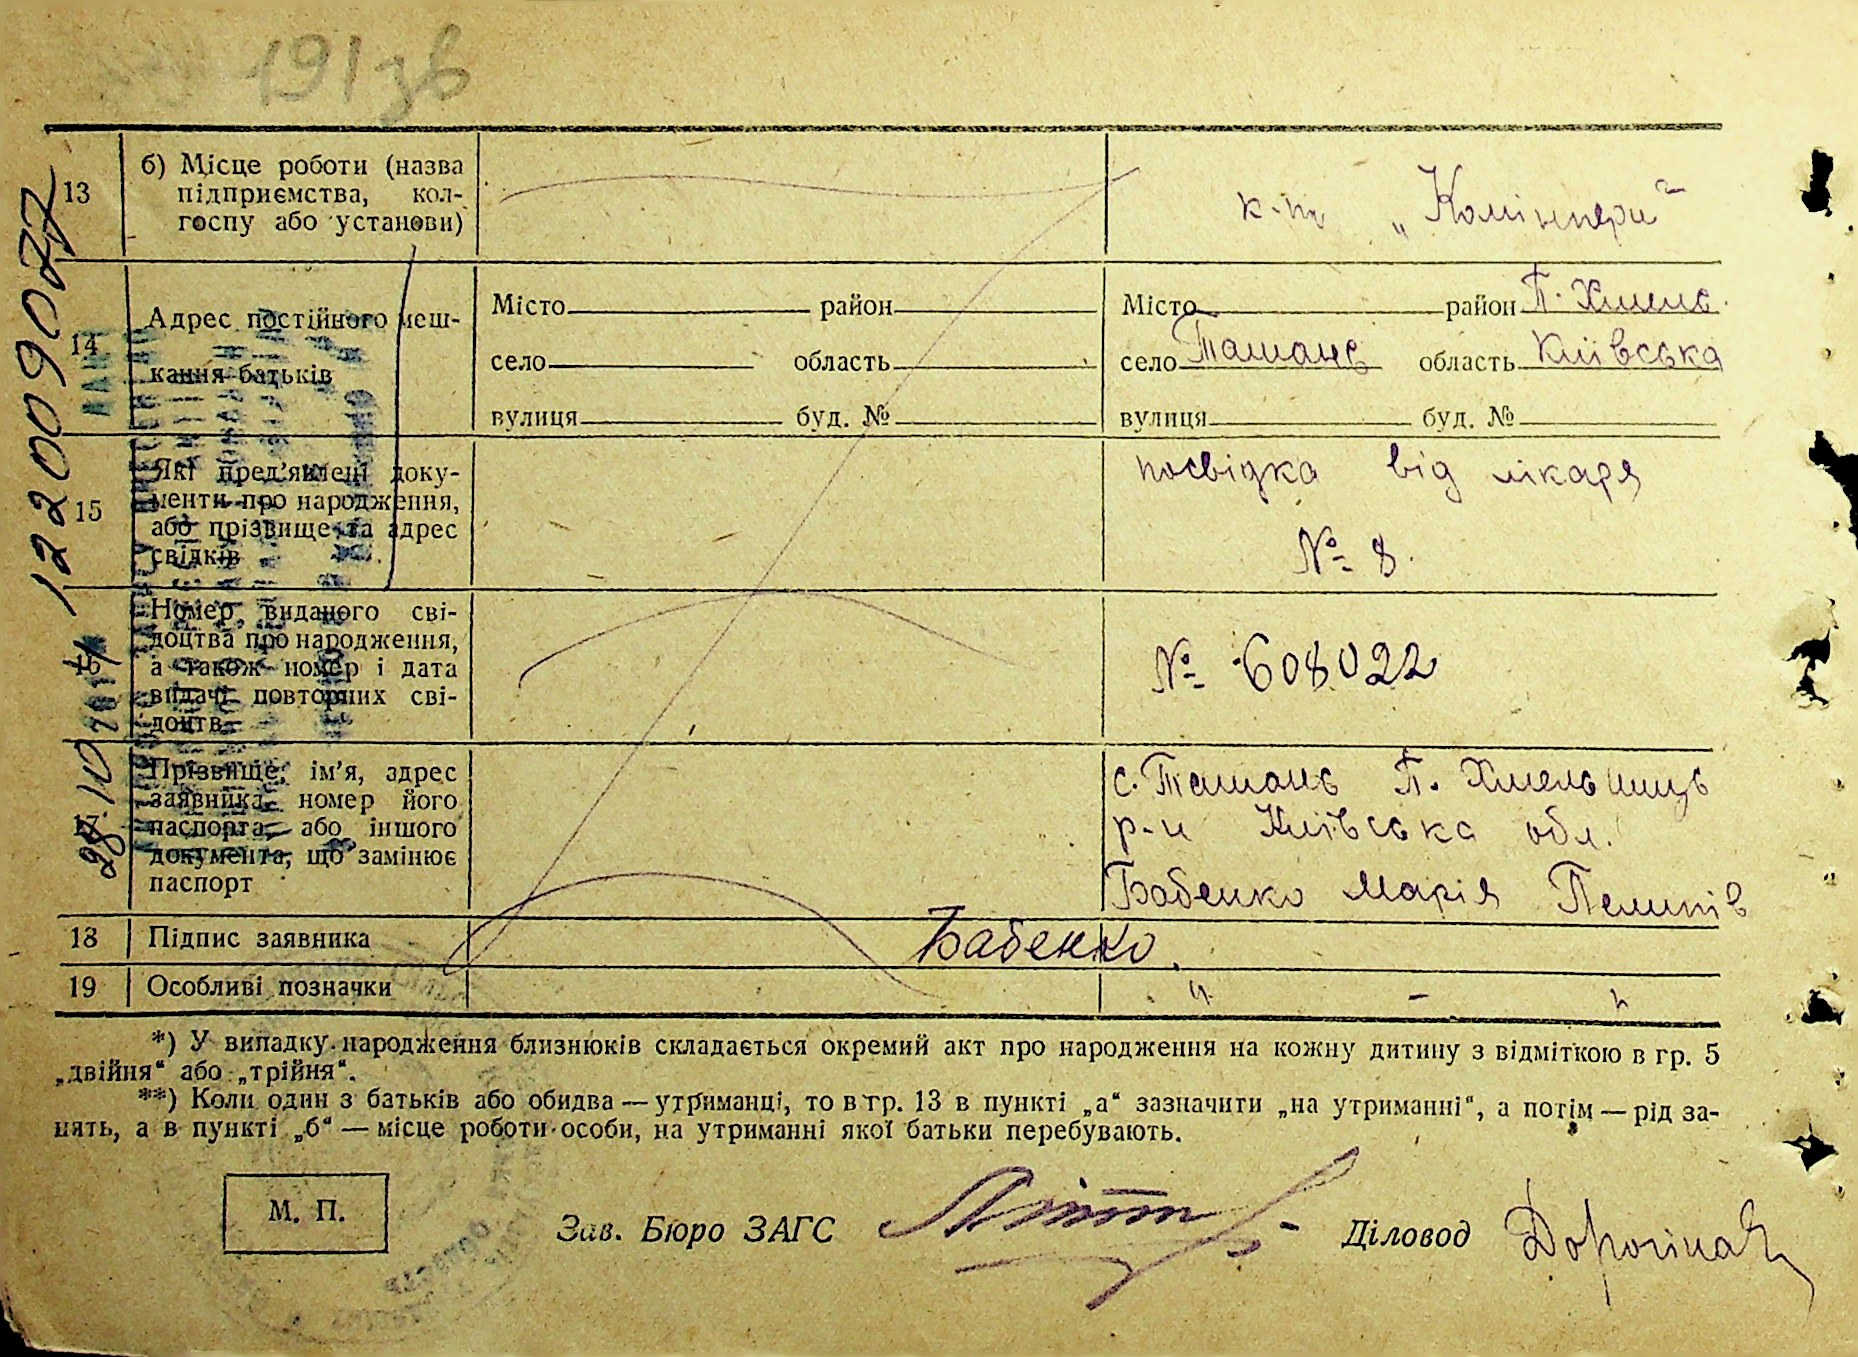 191 зв
12200 9077
28.10
13
б) Місце роботи (назва
підприємства, кол-
госпу або установи)
к-п „Комінтерн“
14
Адрес постійного меш-
кання батьків
Місто район
село область
вулиця буд. №
Місто район П. Хмель.
село Ташань область Київська
вулиця буд. №
15
Які пред’явлені доку-
менти про народження,
або прізвище та адрес
свідків
посвідка від лікаря
№ 8.
16
Номер виданого сві-
доцтва про народження,
а також номер і дата
видачі повторних сві-
доцтв
№ 608022
17
Прізвище, ім’я, адрес
заявника, номер його
паспорта, або іншого
документа, що замінює
паспорт
с. Ташань П. Хмельниць
р-н Київська обл.
Бабенко Марія
18
Підпис заявника
Бабенко
19
Особливі позначки
" - "
*) У випадку народження близнюків складається окремий акт про народження на кожну дитину з відміткою в гр. 5
„двійня“ або „трійня“.
**) Коли один з батьків або обидва — утриманці, то в гр. 13 в пункті „а“ зазначити „на утриманні“, а потім — рід за-
нять, а в пункті „б“ — місце роботи особи, на утриманні якої батьки перебувають.
М. П.
Зав. Бюро ЗАГС
Діловод